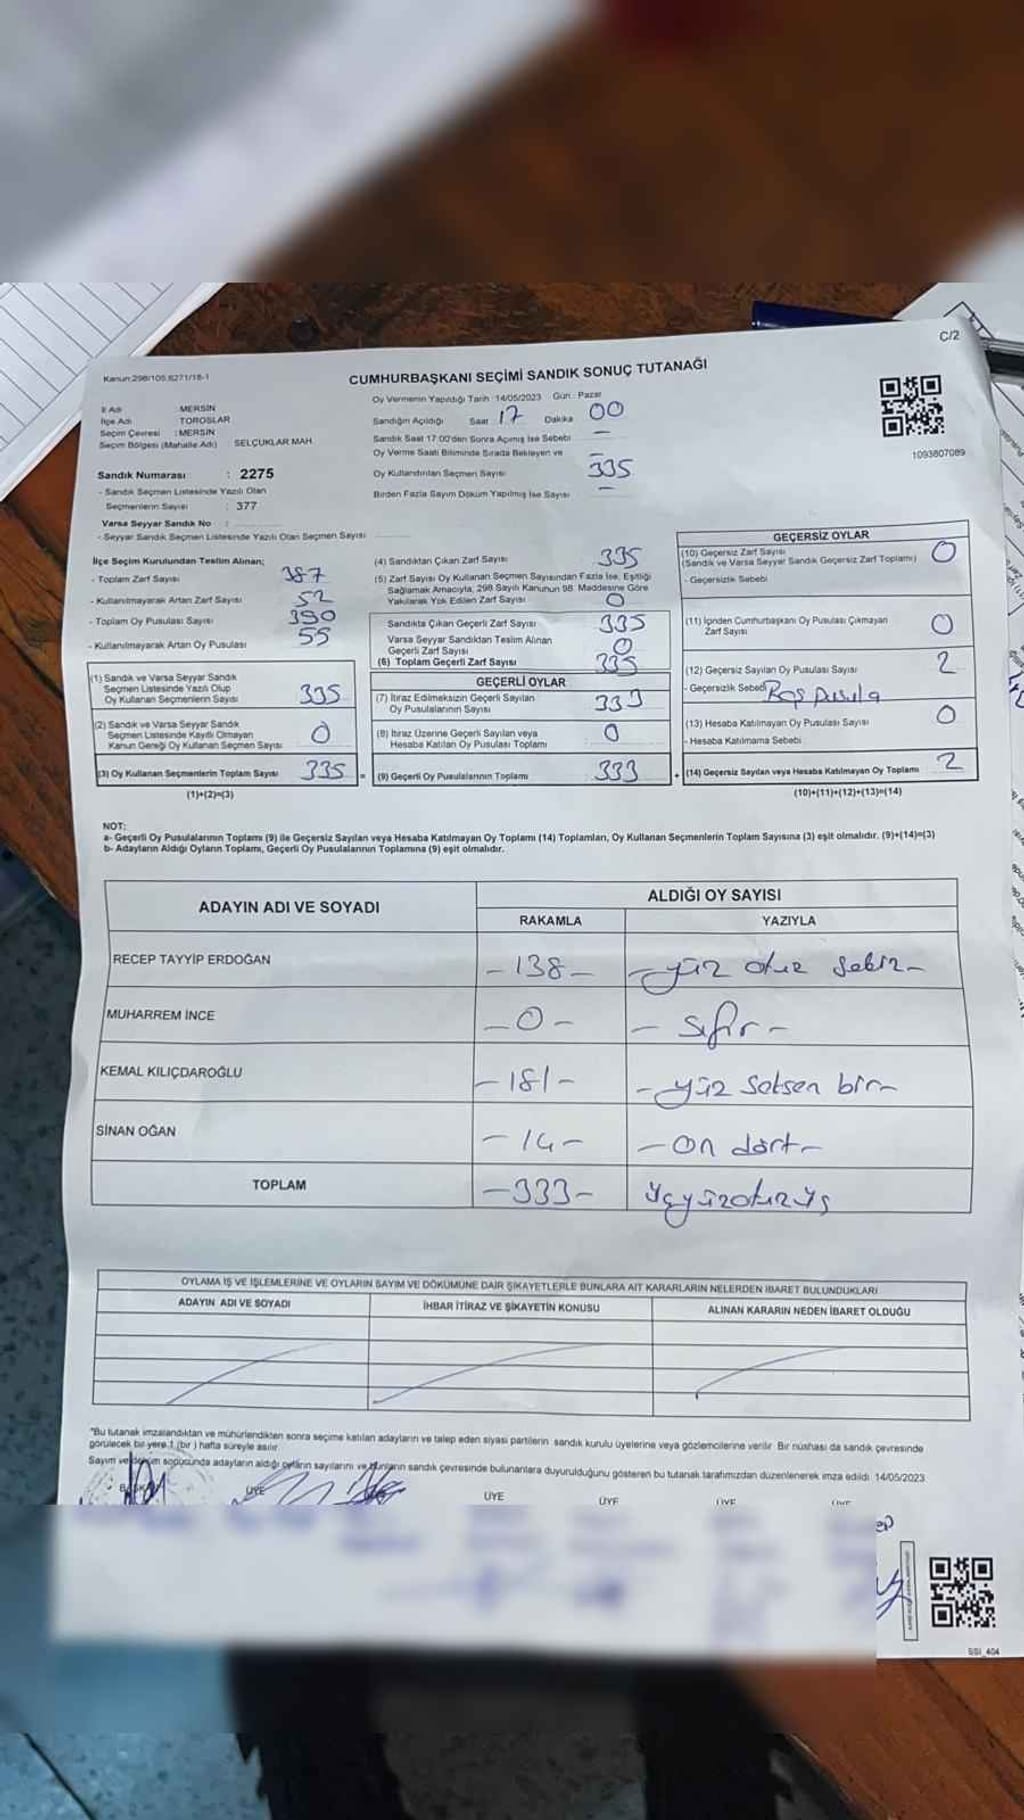 C/2
Kanun:298/105,6271/18-1
CUMHURBAŞKANI SEÇİMİ SANDIK SONUÇ TUTANAĞI
İl Adı : MERSİN
İlçe Adı : TOROSLAR
Seçim Çevresi : MERSİN
Seçim Bölgesi (Mahalle Adı) : SELÇUKLAR MAH.
Sandık Numarası : 2275
- Sandık Seçmen Listesinde Yazılı Olan
Seçmenlerin Sayısı : 377
Varsa Seyyar Sandık No :
- Seyyar Sandık Seçmen Listesinde Yazılı Olan Seçmen Sayısı
Oy Vermenin Yapıldığı Tarih :14/05/2023 Gün : Pazar
Sandığın Açıldığı Saat : 17 Dakika 00
Sandık Saat 17.00'den Sonra Açımış İse Sebebi –
Oy Verme Saati Bitiminde Sırada Bekleyen ve –
Oy Kullandırılan Seçmen Sayısı 335
Birden Fazla Sayım Döküm Yapılmış İse Sayısı –
1093807089
İlçe Seçim Kurulundan Teslim Alınan;
- Toplam Zarf Sayısı 387
- Kullanılmayarak Artan Zarf Sayısı 52
- Toplam Oy Pusulası Sayısı 390
- Kullanılmayarak Artan Oy Pusulası 55
(1) Sandık ve Varsa Seyyar Sandık
Seçmen Listesinde Yazılı Olup
Oy Kullanan Seçmenlerin Sayısı 335
(2) Sandık ve Varsa Seyyar Sandık
Seçmen Listesinde Kayıtlı Olmayan
Kanun Gereği Oy Kullanan Seçmen Sayısı 0
(3) Oy Kullanan Seçmenlerin Toplam Sayısı 335 =
(1)+(2)=(3)
(4) Sandıktan Çıkan Zarf Sayısı 335
(5) Zarf Sayısı Oy Kullanan Seçmen Sayısından Fazla İse, Eşitliği
Sağlamak Amacıyla, 298 Sayılı Kanunun 98. Maddesine Göre
Yakılarak Yok Edilen Zarf Sayısı 0
Sandıkta Çıkan Geçerli Zarf Sayısı 335
Varsa Seyyar Sandıktan Teslim Alınan
Geçerli Zarf Sayısı 0
(6) Toplam Geçerli Zarf Sayısı 335
GEÇERLİ OYLAR
(7) İtiraz Edilmeksizin Geçerli Sayılan
Oy Pusulalarının Sayısı 333
(8) İtiraz Üzerine Geçerli Sayılan veya
Hesaba Katılan Oy Pusulası Toplamı 0
(9) Geçerli Oy Pusulalarının Toplamı 333 +
GEÇERSİZ OYLAR
(10) Geçersiz Zarf Sayısı 0
(Sandık ve Varsa Seyyar Sandık Geçersiz Zarf Toplamı)
- Geçersizlik Sebebi
(11) İçinden Cumhurbaşkanı Oy Pusulası Çıkmayan
Zarf Sayısı 0
(12) Geçersiz Sayılan Oy Pusulası Sayısı 2
- Geçersizlik Sebebi Boş pusula
(13) Hesaba Katılmayan Oy Pusulası Sayısı 0
- Hesaba Katılmama Sebebi
(14) Geçersiz Sayılan veya Hesaba Katılmayan Oy Toplamı 2
(10)+(11)+(12)+(13)=(14)
NOT:
a- Geçerli Oy Pusulalarının Toplamı (9) ile Geçersiz Sayılan veya Hesaba Katılmayan Oy Toplamı (14) Toplamları, Oy Kullanan Seçmenlerin Toplam Sayısına (3) eşit olmalıdır. (9)+(14)=(3)
b- Adayların Aldığı Oyların Toplamı, Geçerli Oy Pusulalarının Toplamına (9) eşit olmalıdır.
ADAYIN ADI VE SOYADI
ALDIĞI OY SAYISI
RAKAMLA YAZIYLA
RECEP TAYYİP ERDOĞAN -138- -yüz otuz sekiz-
MUHARREM İNCE -0- - sıfır -
KEMAL KILIÇDAROĞLU -181- -yüz seksen bir-
SİNAN OĞAN -14- -on dört-
TOPLAM -333- üçyüzotuzüç
OYLAMA İŞ VE İŞLEMLERİNE VE OYLARIN SAYIM VE DÖKÜMÜNE DAİR ŞİKAYETLERLE BUNLARA AİT KARARLARIN NELERDEN İBARET BULUNDUKLARI
ADAYIN ADI VE SOYADI İHBAR İTİRAZ VE ŞİKAYETİN KONUSU ALINAN KARARIN NEDEN İBARET OLDUĞU
"Bu tutanak imzalandıktan ve mühürlendikten sonra seçime katılan adayların ve talep eden siyasi partilerin sandık kurulu üyelerine veya gözlemcilerine verilir. Bir nüshası da sandık çevresinde
görülecek bir yere 1 (bir ) hafta süreyle asılır.
Sayım ve döküm sonucunda adayların aldığı oyların sayılarını ve bunların sandık çevresinde bulunanlara duyurulduğunu gösteren bu tutanak tarafımızdan düzenlenerek imza edildi. 14/05/2023
ÜYE ÜYE ÜYE ÜYE ÜYE
SSI_404